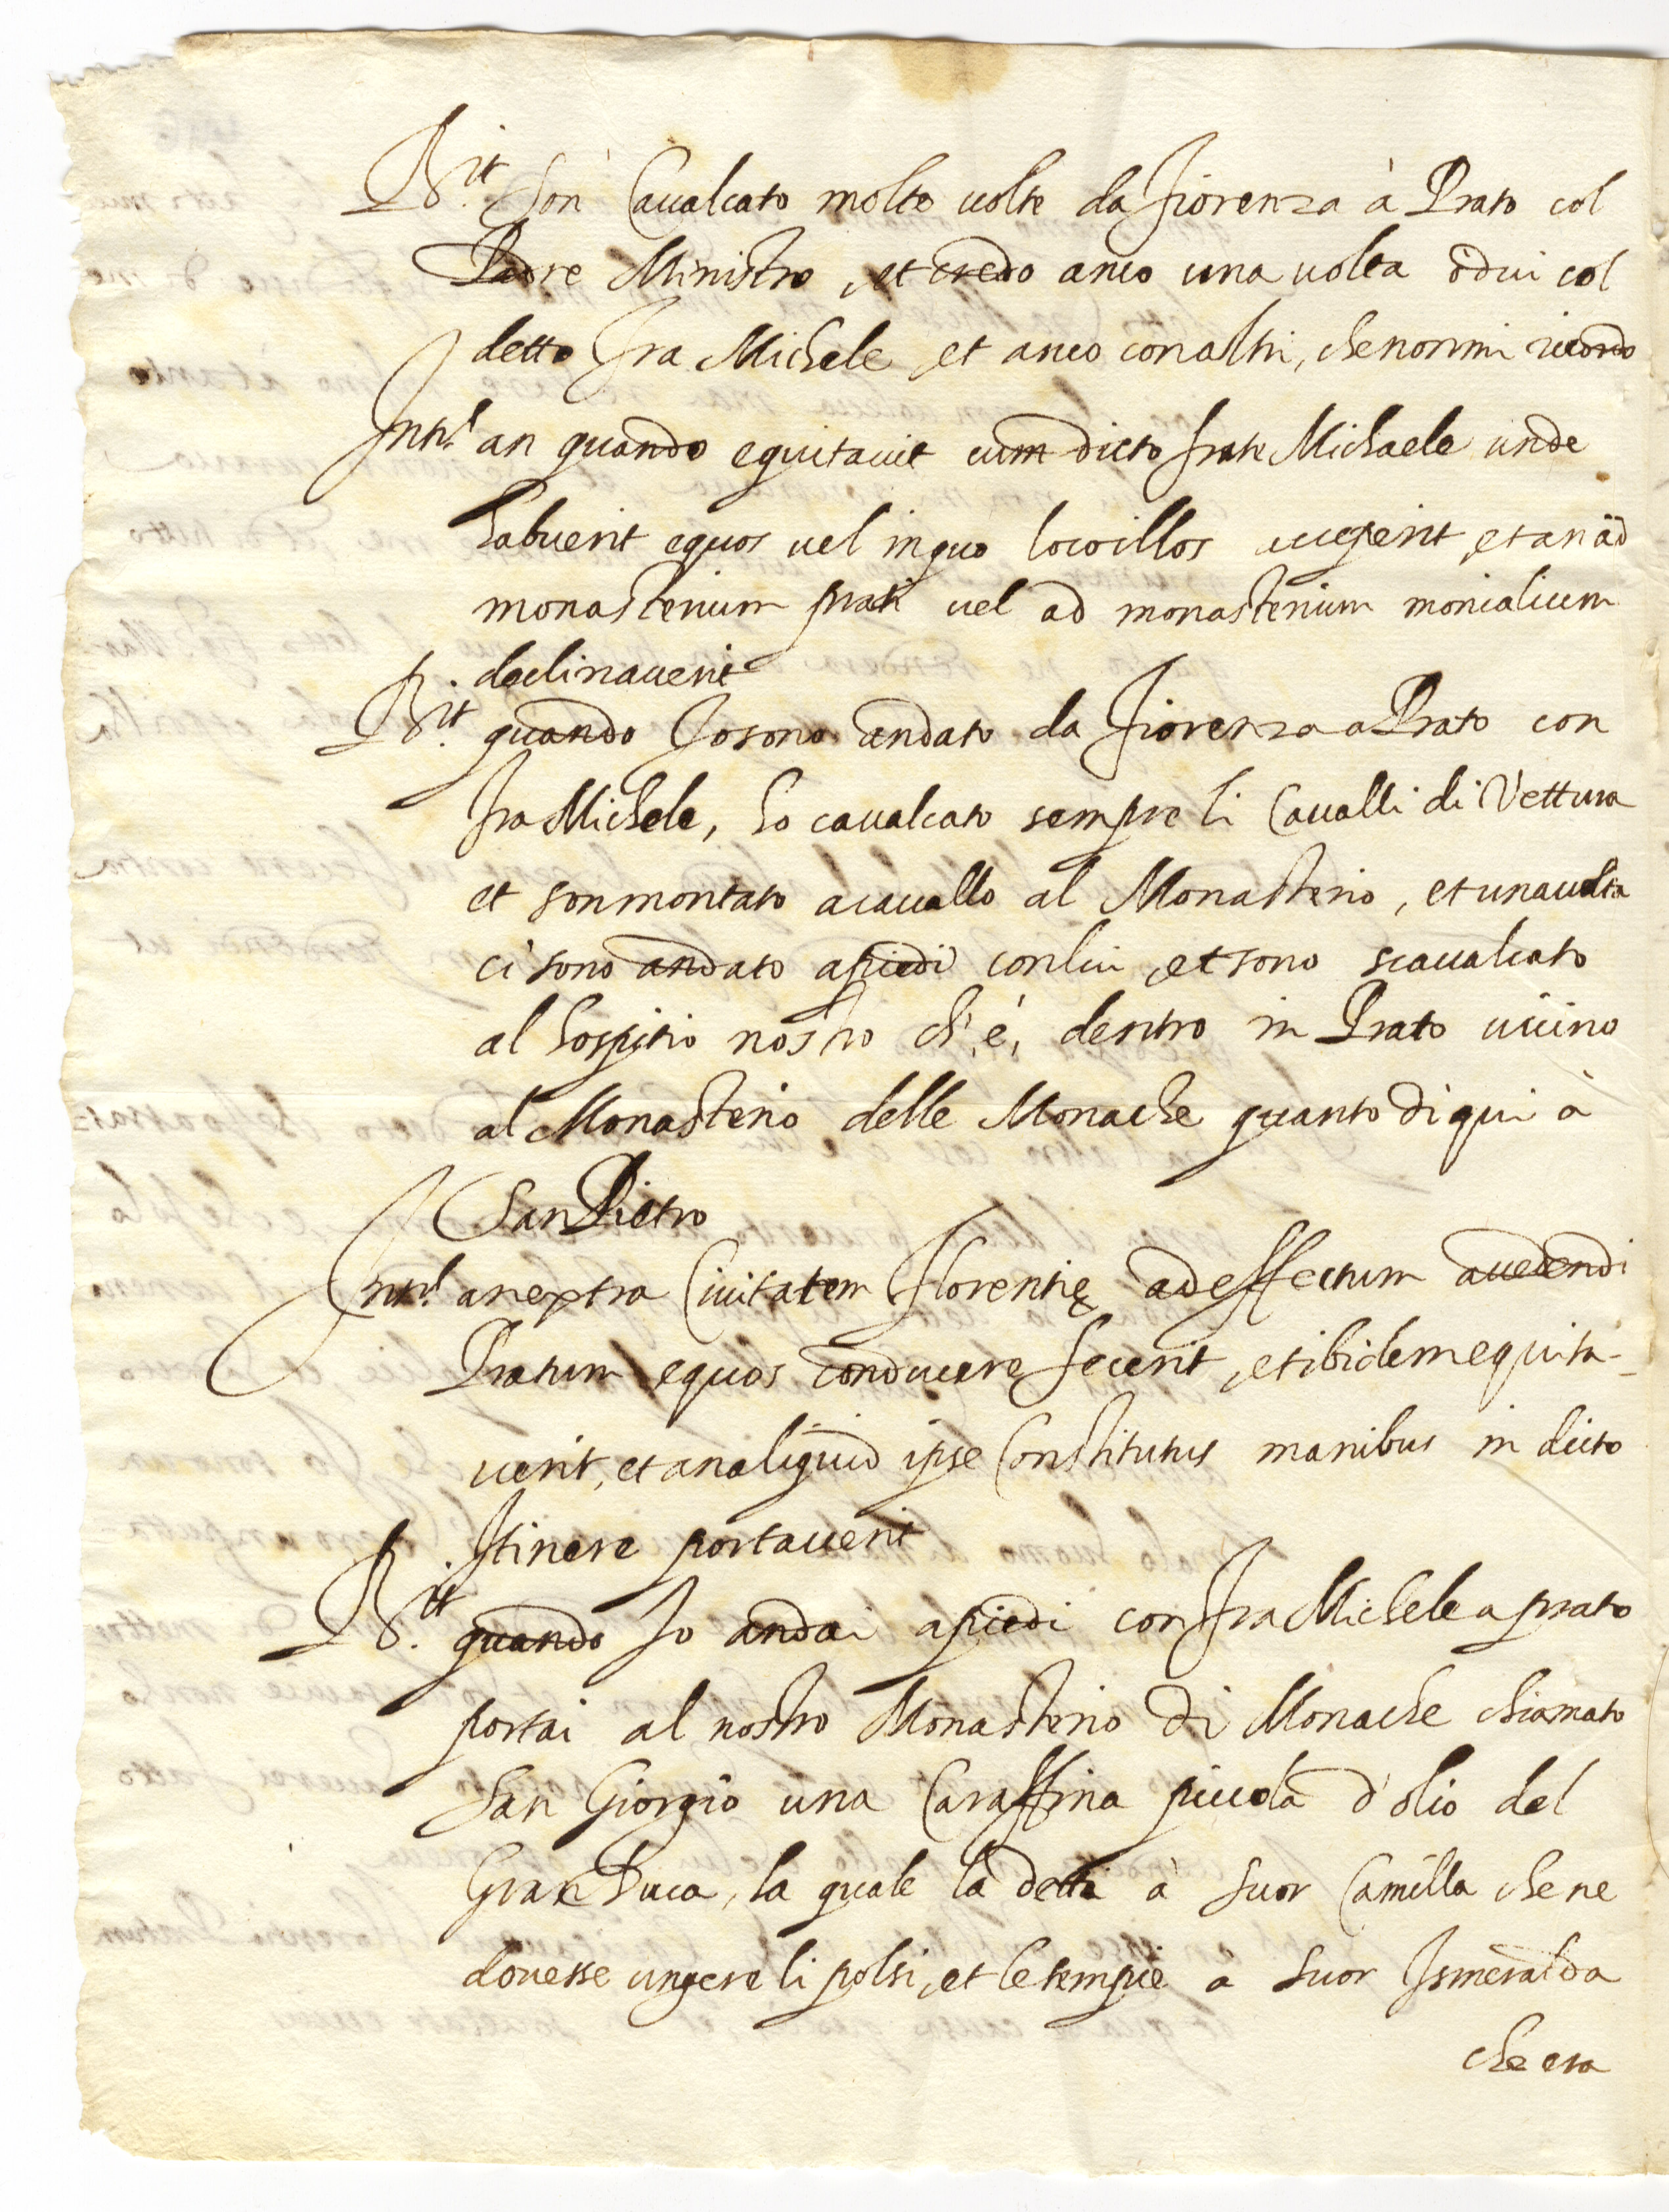 R.it Son Caualcato molte uolte da fiorenza à Prato col
Padre Ministro, et credo anco una uolta ò dui col
detto fra Michele, et anco con altri, che non mi ricordo
Int.s an quando equitauit cum dicto fratre Michaele unde
habuerit equos uel in quo loco illos acceperit, et an ad
monasterium prati uel ad monasterium monialium
declinauerit
R.it quando Io sono andato da Fiorenza a Prato con
fra Michele, ho caualcato sempre li Caualli di Vettura
et son montato a cauallo al Monasterio, et una uolta
ci sono andato a piedi con lui, et sono scaualcato
al hospitio nostro ch'è, dentro in Prato uicino
al Monasterio delle Monache quanto di qui à
San Pietro
Int.s an extra Ciuitatem Florentię ad effectum accedendi
Pratum equos conducere fecerit, et ibidem equita-
uerit, et an aliquid ipse Constitutus manibus in dicto
Itinere portauerit
R.it quando Io andai a piedi con fra Michele a prato
portai al nostro Monasterio di Monache chiamato
San Giorgio una Caraffina piccola d'olio del
Gran Duca, la quale la detti à Suor Camilla che ne
douesse ungere li polsi, et le tempie à Suor Ismeralda
che era